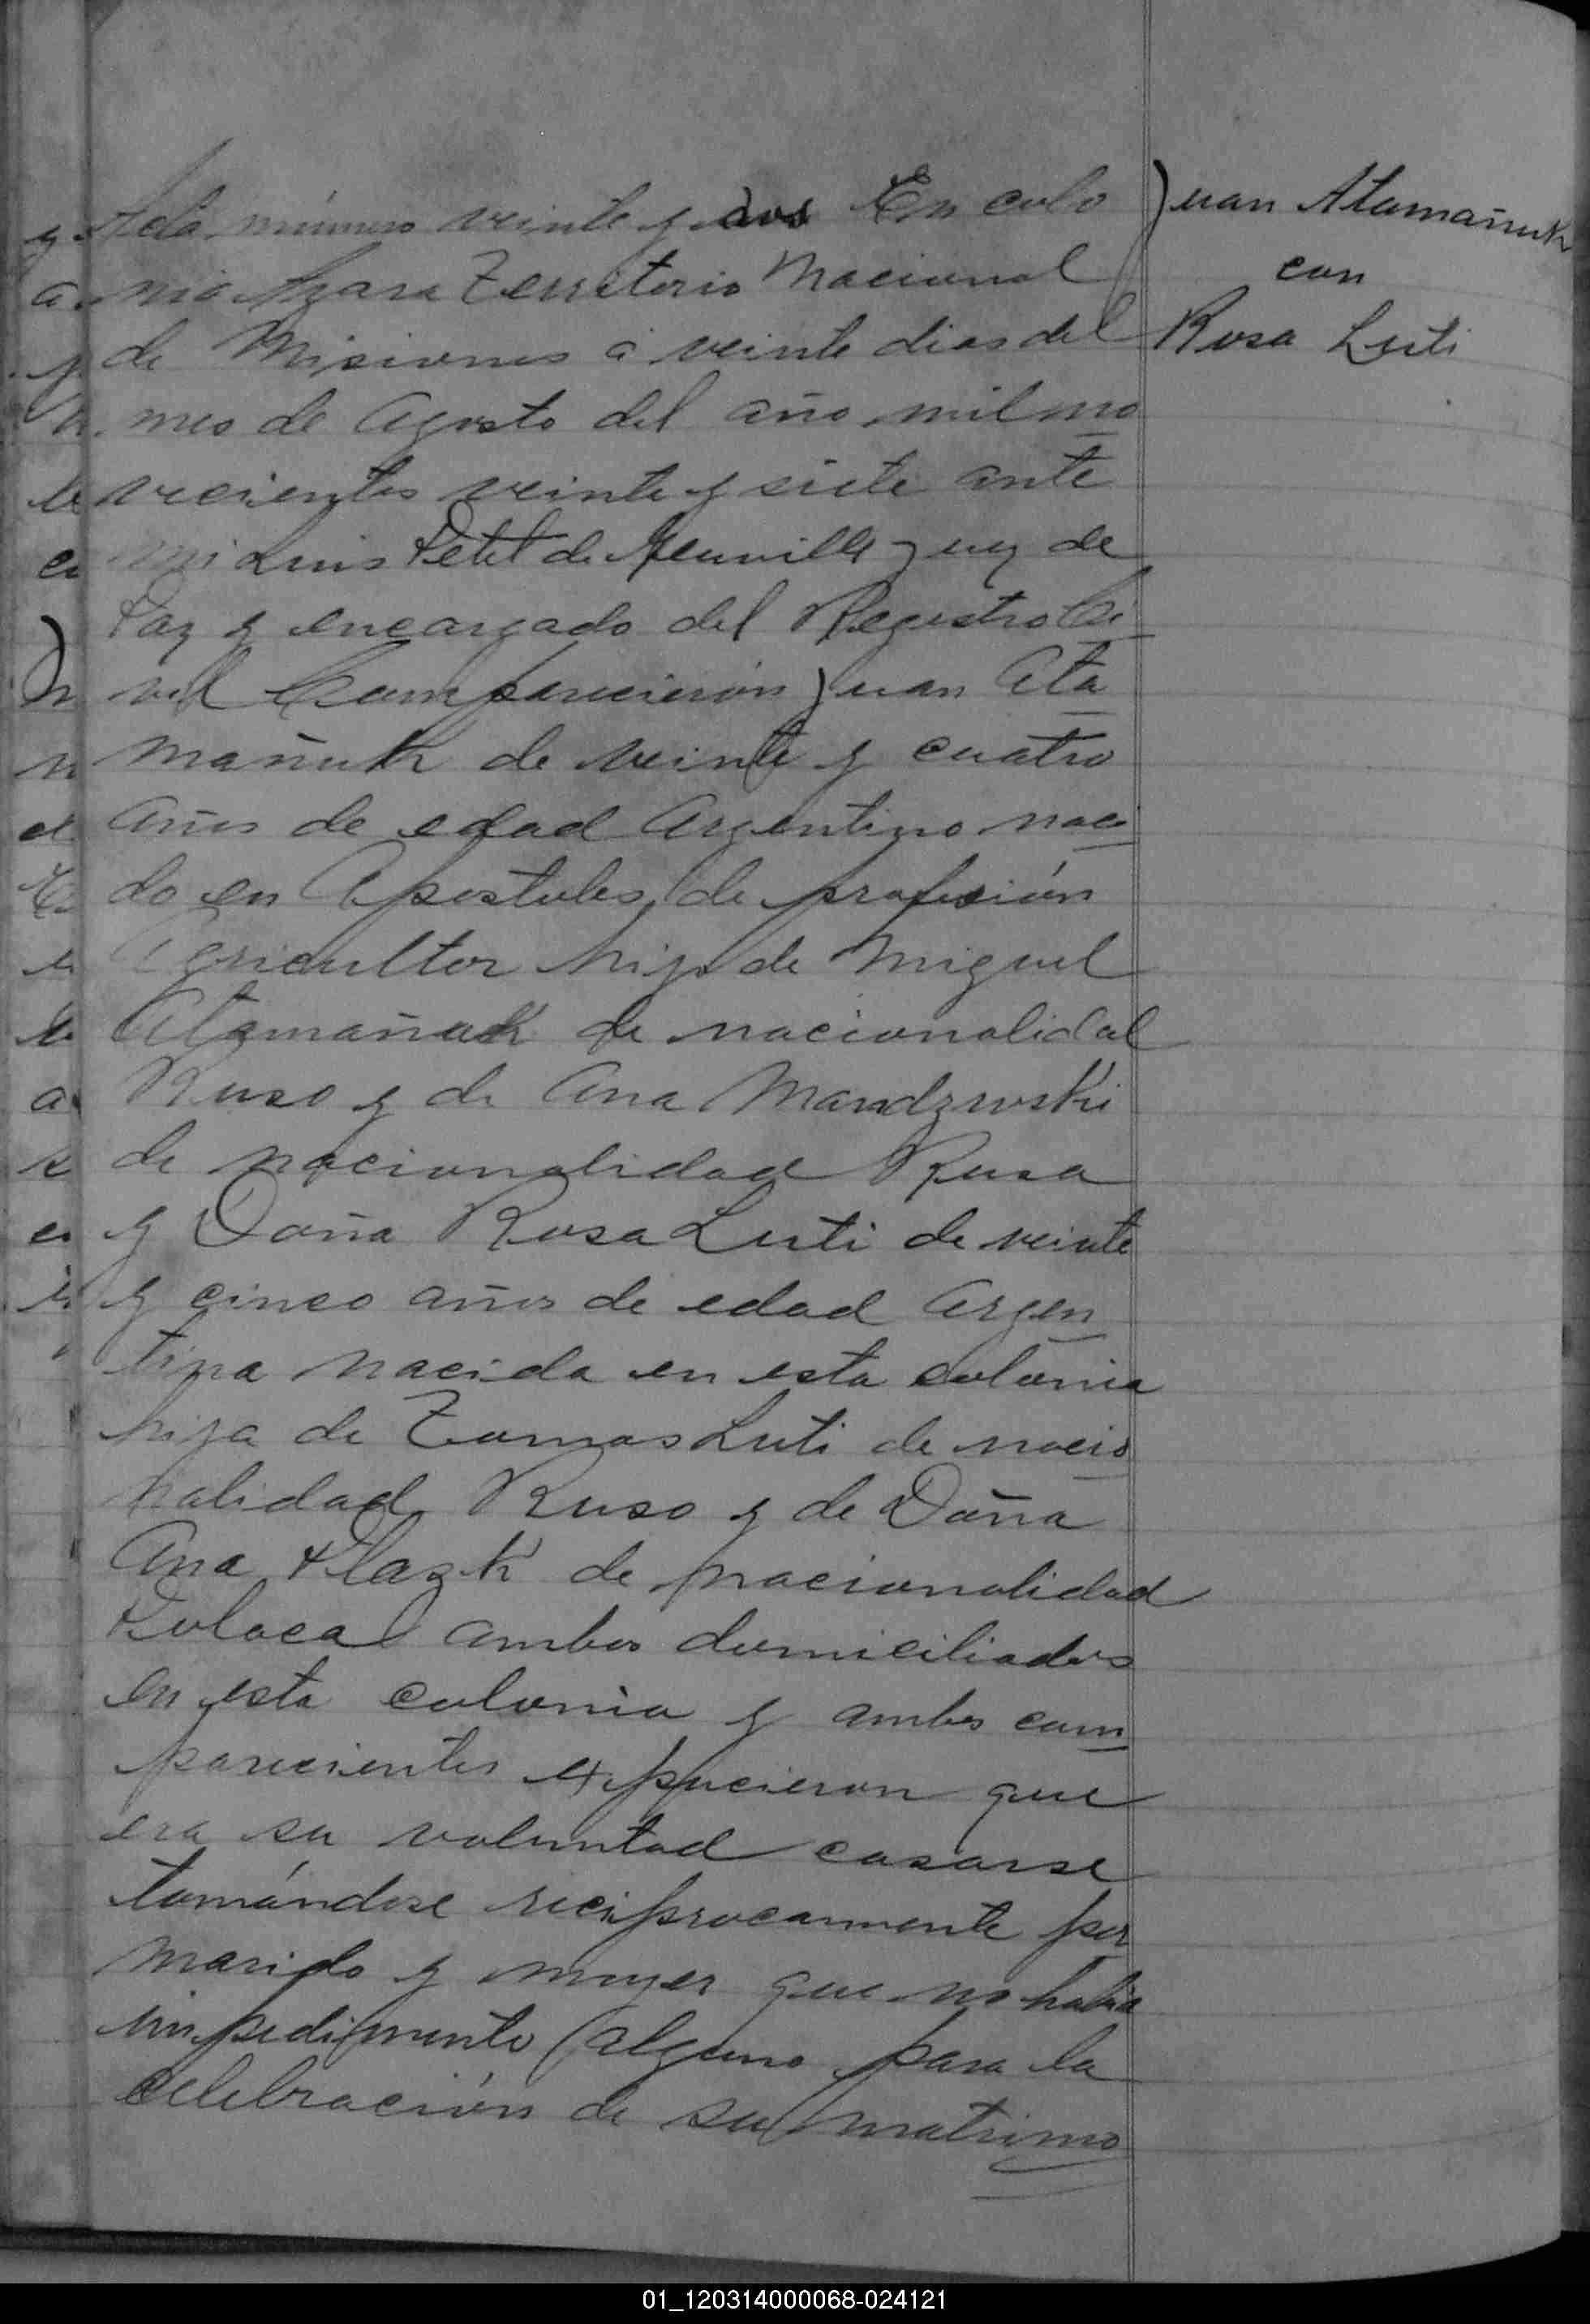 Acta número veinte y dos En colo
nia Azara Territorio Nacional
de Misiones á veinte dias del
mes de Agosto del año mil no
vecientos veinte y siete ante
mi Luis Petit de Meuville Juez de
Paz y encargado del Registro Ci
vil Comparecieron Juan Ata
mañuk de veinte y cuatro
años de edad Argentino naci
do en Apostoles, de profesión
Agricultor hijo de Miguel
Atamañuk de nacionalidad
Ruso y de Ana Mandzurski
de nacionalidad Rusa
y Doña Rosa Luti de veinte
y cinco años de edad Argen
tina nacida en esta colonia
hija de Tomas Luti de nacio
nalidad Ruso y de Doña
Ana Plazk de nacionalidad
Polaca ambos domiciliados
en esta colonia y ambos com
parecientes expucieron que
era su voluntad casarse
tomándose reciprocamente por
marido y mujer que no habia
impedimento alguno para la
celebración de su matrimo
Juan Atamañuk
con
Rosa Luti
01_120314000068-024121